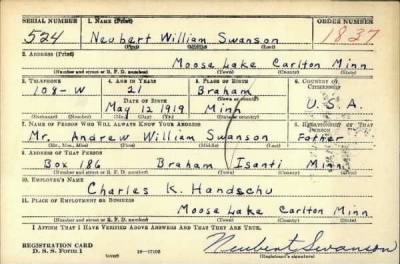 SERIAL NUMBER 1. NAME (Print) ORDER NUMBER
524 Neubert William Swanson 1837
(First) (Middle) (Last)
2. ADDRESS (Print)
Moose Lake Carlton Minn
(Number and street or R. F. D. number) (Town) (County) (State)
3. TELEPHONE 4. AGE IN YEARS 5. PLACE OF BIRTH 6. COUNTRY OF CITIZENSHIP
108-W 21 Braham
DATE OF BIRTH (Town or county)
May 12 1919 Minn U.S.A.
(Exchange) (Number) (Mo.) (Day) (Yr.) (State or country)
7. NAME OF PERSON WHO WILL ALWAYS KNOW YOUR ADDRESS 8. RELATIONSHIP OF THAT PERSON
Mr. Andrew William Swanson Father
(Mr., Mrs., Miss) (First) (Middle) (Last)
9. ADDRESS OF THAT PERSON
Box 186 Braham Isanti Minn
(Number and street or R. F. D. number) (Town) (County) (State)
10. EMPLOYER'S NAME
Charles K. Handschu
11. PLACE OF EMPLOYMENT OR BUSINESS
Moose Lake Carlton Minn
(Number and street or R. F. D. number) (Town) (County) (State)
I AFFIRM THAT I HAVE VERIFIED ABOVE ANSWERS AND THAT THEY ARE TRUE.
REGISTRATION CARD
D. S. S. Form 1 (over) Neubert Swanson
(Registrant's signature)